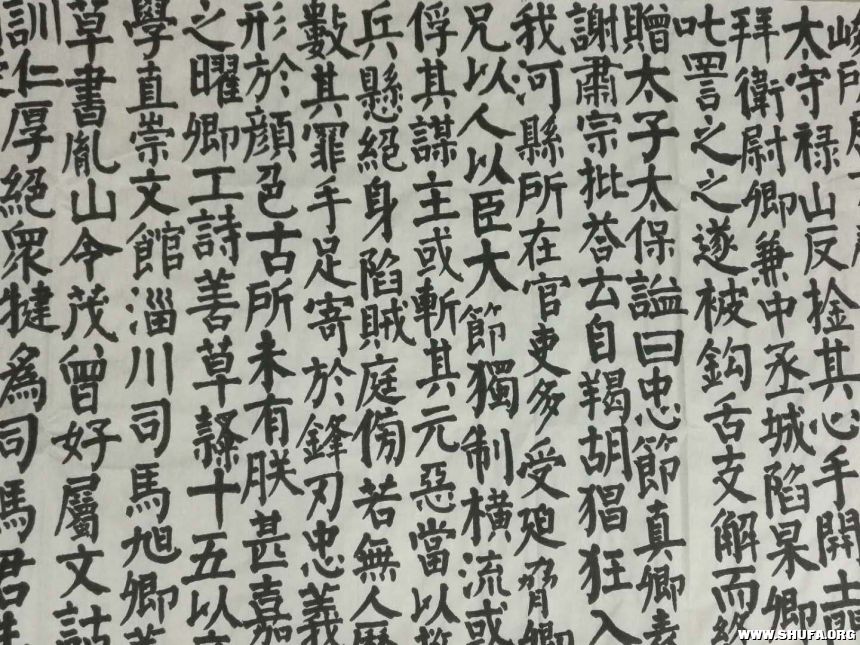 所
太守禄山反捦其心手開土
拜衛尉卿兼中丞城陷杲卿
叱詈之之遂被鈎舌支解而終
贈太子太保謚曰忠節真卿表
謝肅宗批荅云自羯胡猖狂入
我河縣所在官吏多受迫脅卿
兄以人以臣大節獨制橫流或
俘其謀主或斬其元惡當以救
兵懸絕身陷賊庭傍若無人歷
數其罪手足寄於鋒刃忠義
形於顔色古所未有朕甚嘉
之曜卿工詩善草隸十五以
學直崇文館淄川司馬旭卿善
草書胤山令茂曾好屬文詁
訓仁厚絕衆犍為司馬君
WWW.SHUFA.ORG